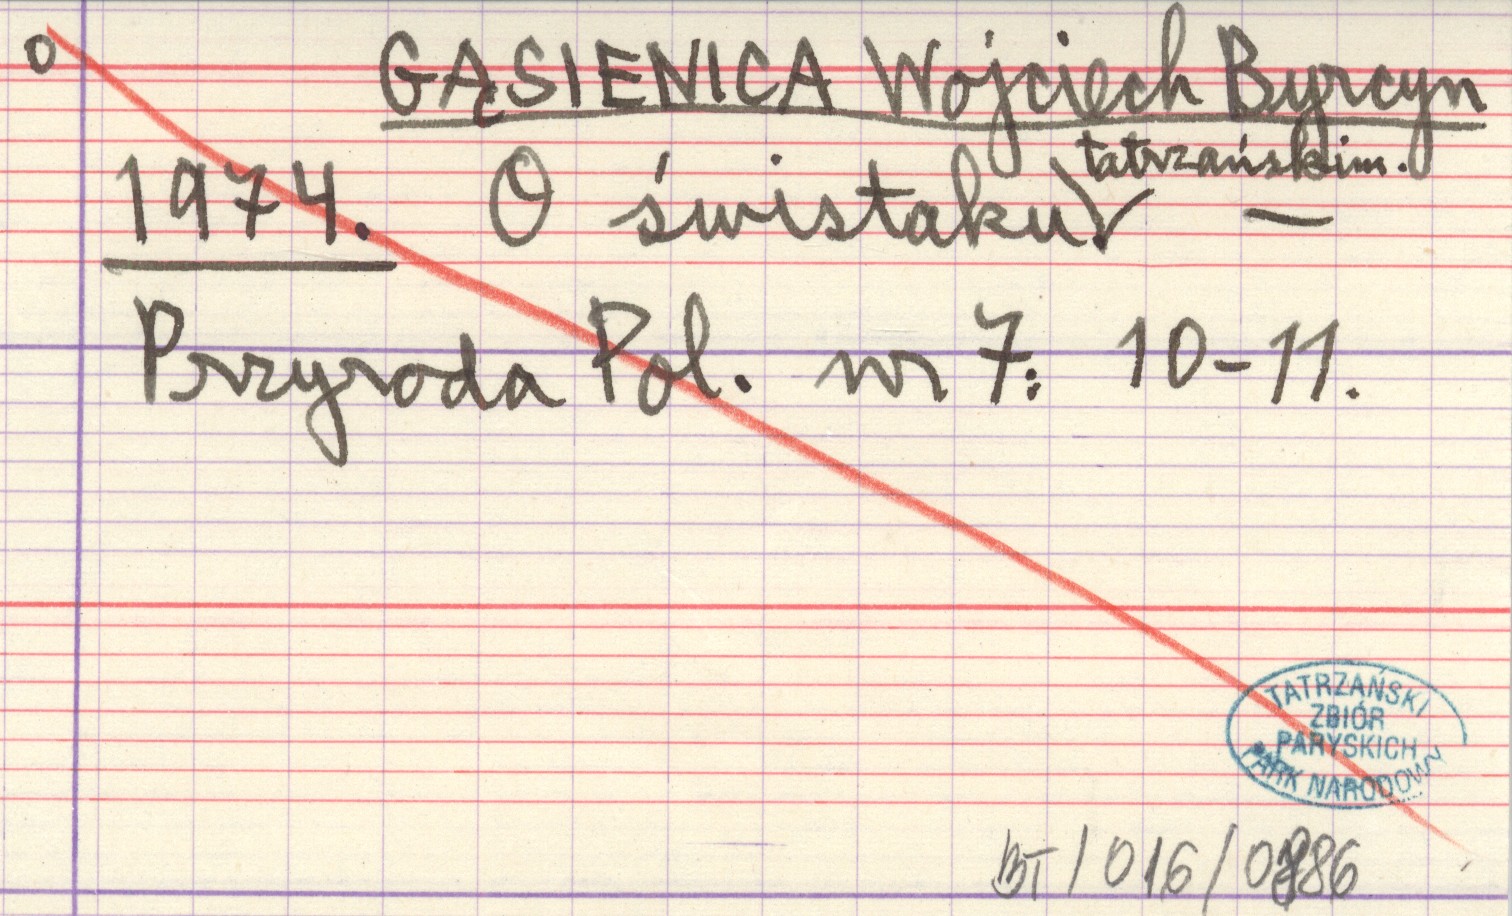 o GĄSIENICA Wojciech Byrcyn
tatrzańskim.
1974. O świstaku. —
Przyroda Pol. nr 7: 10-11.
TATRZAŃSKI
ZBIÓR
PARYSKICH
PARK NARODOWY
BT/016/